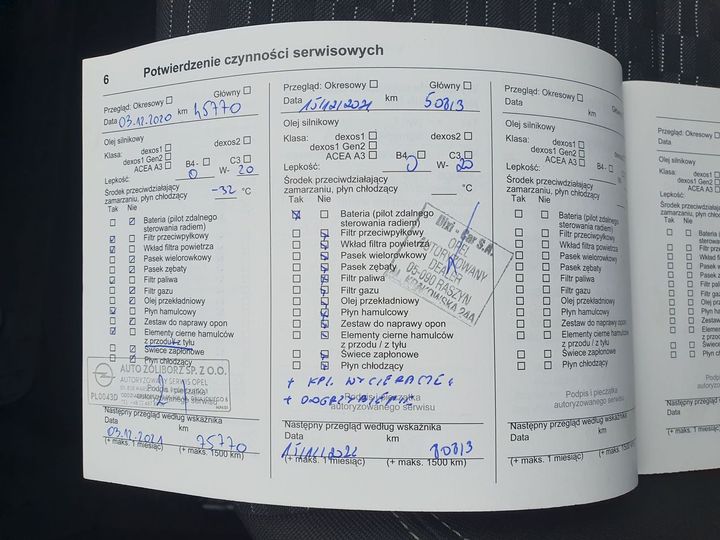 6 Potwierdzenie czynności serwisowych
Przegląd: Okresowy Główny
Data 03.12.2020 km 45770
Olej silnikowy
Klasa: dexos1 dexos2
dexos1 Gen2 B4- C3
ACEA A3
Lepkość: 0 W- 20
Środek przeciwdziałający
zamarzaniu, płyn chłodzący -32 °C
Tak Nie
Bateria (pilot zdalnego
sterowania radiem)
Filtr przeciwpyłkowy
Wkład filtra powietrza
Pasek wielorowkowy
Pasek zębaty
Filtr paliwa
Filtr gazu
Olej przekładniowy
Płyn hamulcowy
Zestaw do naprawy opon
Elementy cierne hamulców
z przodu / z tyłu
Świece zapłonowe
Płyn chłodzący
AUTO ŻOLIBORZ SP. Z O.O.
AUTORYZOWANY SERWIS OPEL
PL0043D
Podpis i pieczątka
autoryzowanego serwisu
Następny przegląd według wskaźnika
03.12.2021 km 75770
(+ maks. 1 miesiąc) (+ maks. 1500 km)
Przegląd: Okresowy Główny
Data 15/12/2021 km 50813
Olej silnikowy
Klasa: dexos1 dexos2
dexos1 Gen2
ACEA A3 B4 C3
Lepkość: 0 W- 20
Środek przeciwdziałający
zamarzaniu, płyn chłodzący °C
Tak Nie
Bateria (pilot zdalnego
sterowania radiem)
Filtr przeciwpyłkowy
Wkład filtra powietrza
Pasek wielorowkowy
Pasek zębaty
Filtr paliwa
Filtr gazu
Olej przekładniowy
Płyn hamulcowy
Zestaw do naprawy opon
Elementy cierne hamulców
z przodu / z tyłu
Świece zapłonowe
Płyn chłodzący
Dixi - Car S.A.
OPEL
AUTORYZOWANY
DEALER
05-090 RASZYN
+ KPL. WYCIERACZEK
+ ODGRZYBIANIE
Podpis i pieczątka
autoryzowanego serwisu
Następny przegląd według wskaźnika
Data km
80813
(+ maks. 1 miesiąc) (+ maks. 1500 km)
Przegląd: Okresowy Główny
Data km
Olej silnikowy
Klasa: dexos1 dexos2
dexos1 Gen2
ACEA A3 B4 - C3
Lepkość: W-
Środek przeciwdziałający
zamarzaniu, płyn chłodzący °C
Tak Nie
Bateria (pilot zdalnego
sterowania radiem)
Filtr przeciwpyłkowy
Wkład filtra powietrza
Pasek wielorowkowy
Pasek zębaty
Filtr paliwa
Filtr gazu
Olej przekładniowy
Płyn hamulcowy
Zestaw do naprawy opon
Elementy cierne hamulców
z przodu / z tyłu
Świece zapłonowe
Płyn chłodzący
Podpis i pieczątka
autoryzowanego serwisu
Następny przegląd według wskaźnika
Data km
(+ maks. 1 miesiąc) (+ maks. 1500 km)
Przegląd: Okresowy
Data
Olej silnikowy
Klasa: dexos1
dexos1 Gen2
ACEA A3
Lepkość:
Środek przeciwdziałający
zamarzaniu, płyn chłodzący
Tak Nie